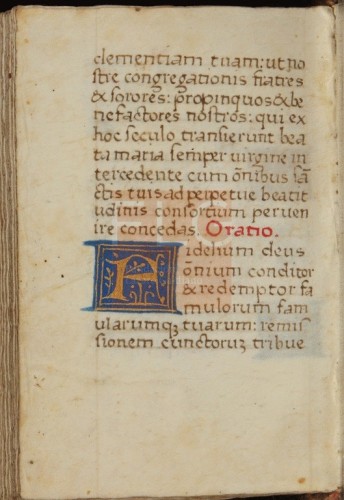 clementiam tuam: ut no
stre congregationis fratres
& sorores: propinquos & be
nefactores nostros: qui ex
hoc seculo transierunt bea
ta maria semper virgine in
tercedente cum oñibus sã
ctis tuis ad perpetue beatit
udinis consortium perven
ire concedas. Oratio.
Fidelium deus
oñium conditor
& redemptor fa
mulorum fam
ularumqꝫ tuarum: remis
sionem cunctoruꝫ tribue